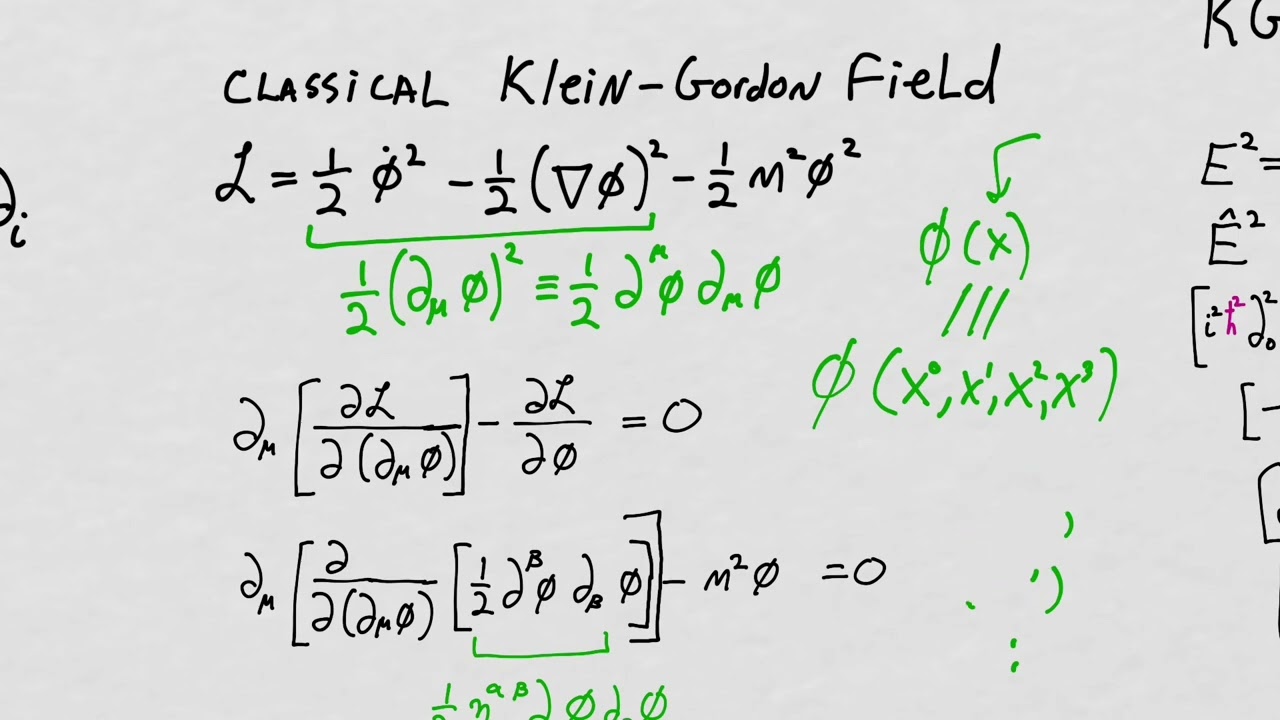 CLASSICAL Klein-Gordon Field
ℒ = 1/2 φ̇² - 1/2 (∇φ)² - 1/2 m²φ²
1/2 (∂_μ φ)² ≡ 1/2 ∂^μ φ ∂_μ φ
φ(x)
///
φ(x⁰, x¹, x², x³)
∂_μ [∂ℒ / ∂(∂_μ φ)] - ∂ℒ/∂φ = 0
∂_μ [∂ / ∂(∂_μ φ) [1/2 ∂^β φ ∂_β φ]] - m²φ = 0
∂_i
KG
E² =
Ê²
[i²ħ²∂₀²
[-